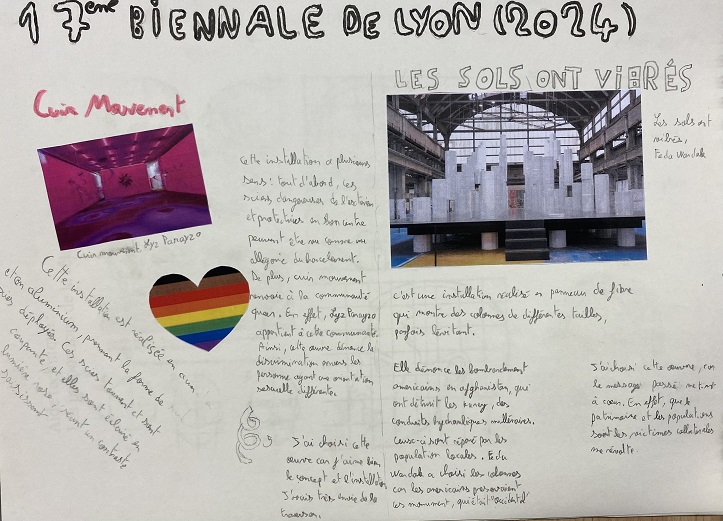 17ème BIENNALE DE LYON (2024)
Cuir Mouvement
Cuir mouvement, Lyz Parayzo
Cette installation est réalisée en cuir
et en aluminium, prenant la forme de
scies déployées. Ces scies tournent et sont
coupantes, et elles sont éclairé en
lumière rose, créant un contraste
saisissant.
Cette installation a plusieurs
sens : tout d'abord, ces
scies dangereuses de l'extérieur,
et protectrices en son centre
peuvent être vu comme une
allégorie du harcèlement.
De plus, cuir mouvement
renvoie à la communauté
queer. En effet, Lyz Parayzo
appartient à cette communauté.
Ainsi, cette œuvre dénonce la
discrimination envers les
personne ayant une orientation
sexuelle différente.
J'ai choisi cette
œuvre car j'aime bien
le concept et l'installation
J'avais très envie de la
traverser.
LES SOLS ONT VIBRÉS
Les sols ont
vibrés,
Feda Wardak
c'est une installation réalisé en panneau de fibre
qui montre des colonnes de différentes tailles,
parfois lévitant.
Elle dénonce les bombardement
américains en afghanistan, qui
ont détruit les karez, des
conduits hydrauliques millénaires.
Ceux-ci sont réparé par les
population locales. Feda
Wardak a choisi les colonnes
car les americains preservaient
les monument, qui était "occidental"
J'ai choisi cette œuvre, car
le message passé me tient
à cœur. En effet, que le
patrimoine et les populations
sont les victimes collatérales
me révolte.